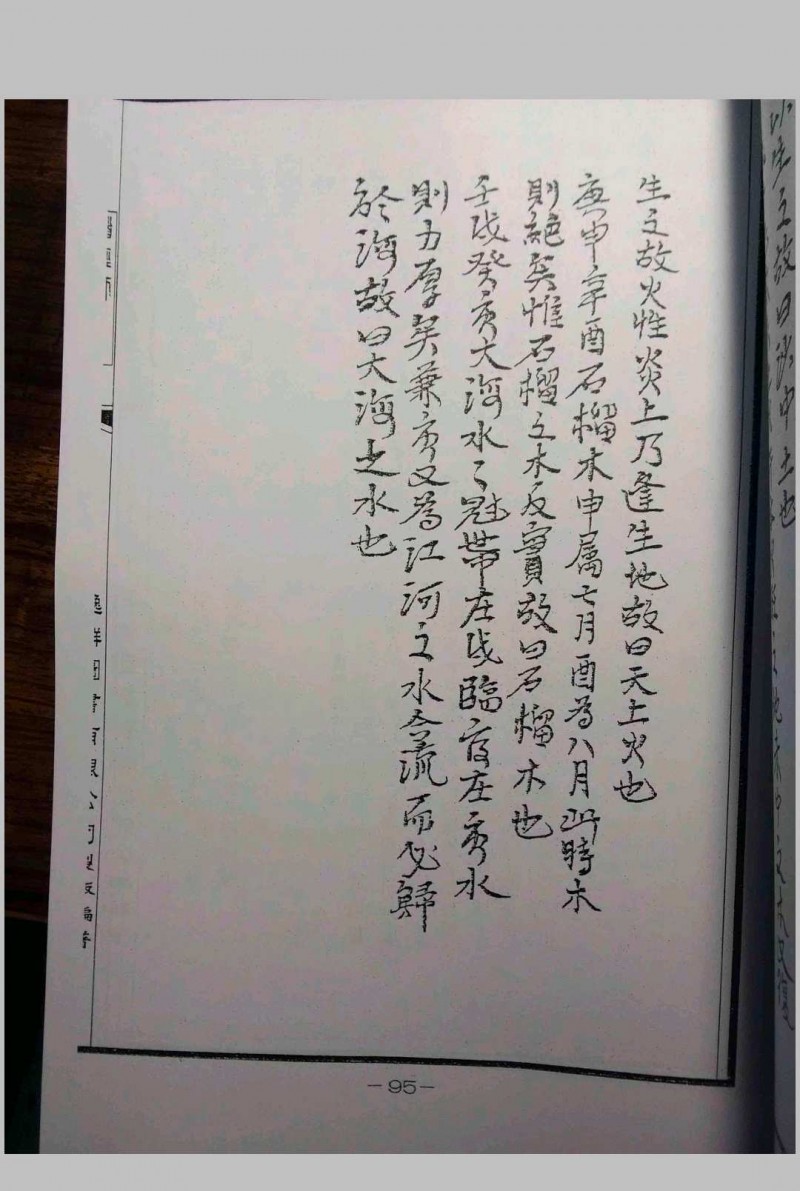 生之故火性炎上乃逢生地故曰天上火也
庚申辛酉石榴木申属七月酉為八月此時木
則絕矣惟石榴之木反實故曰石榴木也
壬戌癸亥大海水〻冠帶在戌臨官在亥水
則力厚矣兼亥又為江河之水合流而必歸
於海故曰大海之水也
有限公司
-95-
故曰沙中土也